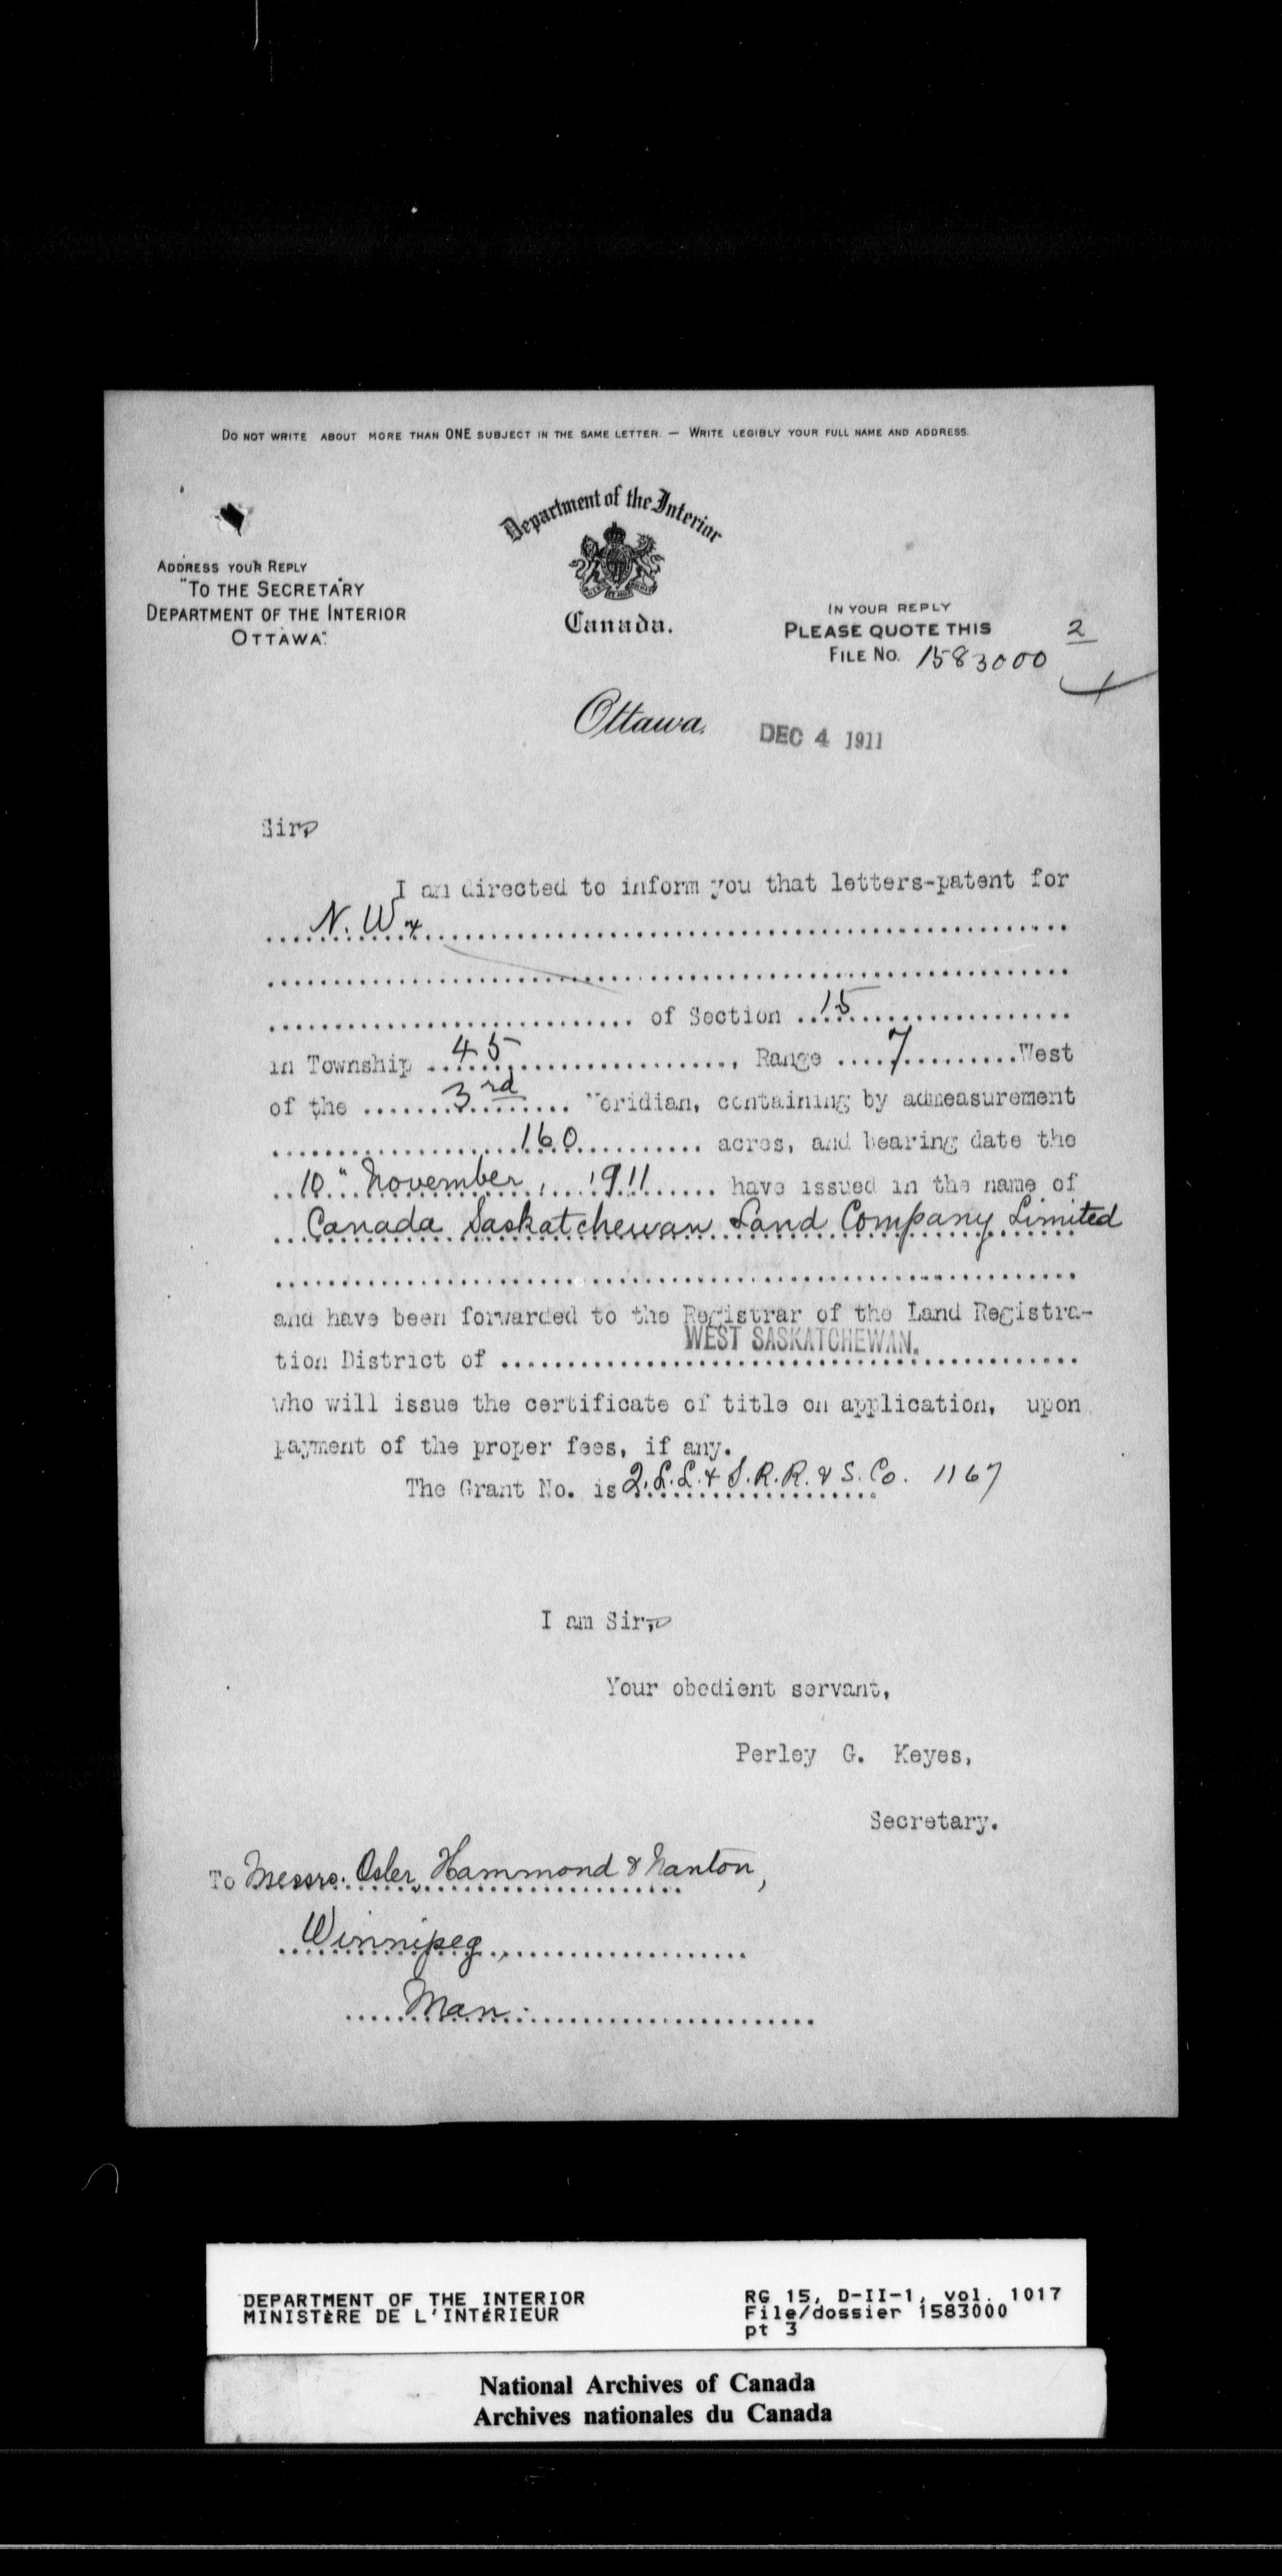 DO NOT WRITE ABOUT MORE THAN ONE SUBJECT IN THE SAME LETTER. — WRITE LEGIBLY YOUR FULL NAME AND ADDRESS.
Department of the Interior
Canada.
ADDRESS YOUR REPLY
"TO THE SECRETARY
DEPARTMENT OF THE INTERIOR
OTTAWA."
IN YOUR REPLY
PLEASE QUOTE THIS
FILE NO. 1583000
2
Ottawa, DEC 4 1911
Sir,
I am directed to inform you that letters-patent for
N. W ¼
of Section 15
in Township 45, Range 7 West
of the 3rd Meridian, containing by admeasurement
160 acres, and bearing date the
10" November, 1911 have issued in the name of
Canada Saskatchewan Land Company Limited
and have been forwarded to the Registrar of the Land Registra-
tion District of WEST SASKATCHEWAN.
who will issue the certificate of title on application, upon
payment of the proper fees, if any.
The Grant No. is Q. L. L. & S. R. R. & S. Co. 1167
I am Sir,
Your obedient servant,
Perley G. Keyes,
Secretary.
To Messrs. Osler, Hammond & Nanton,
Winnipeg,
Man.
DEPARTMENT OF THE INTERIOR
MINISTÈRE DE L'INTÉRIEUR
RG 15, D-II-1, vol. 1017
File/dossier 1583000
pt 3
National Archives of Canada
Archives nationales du Canada